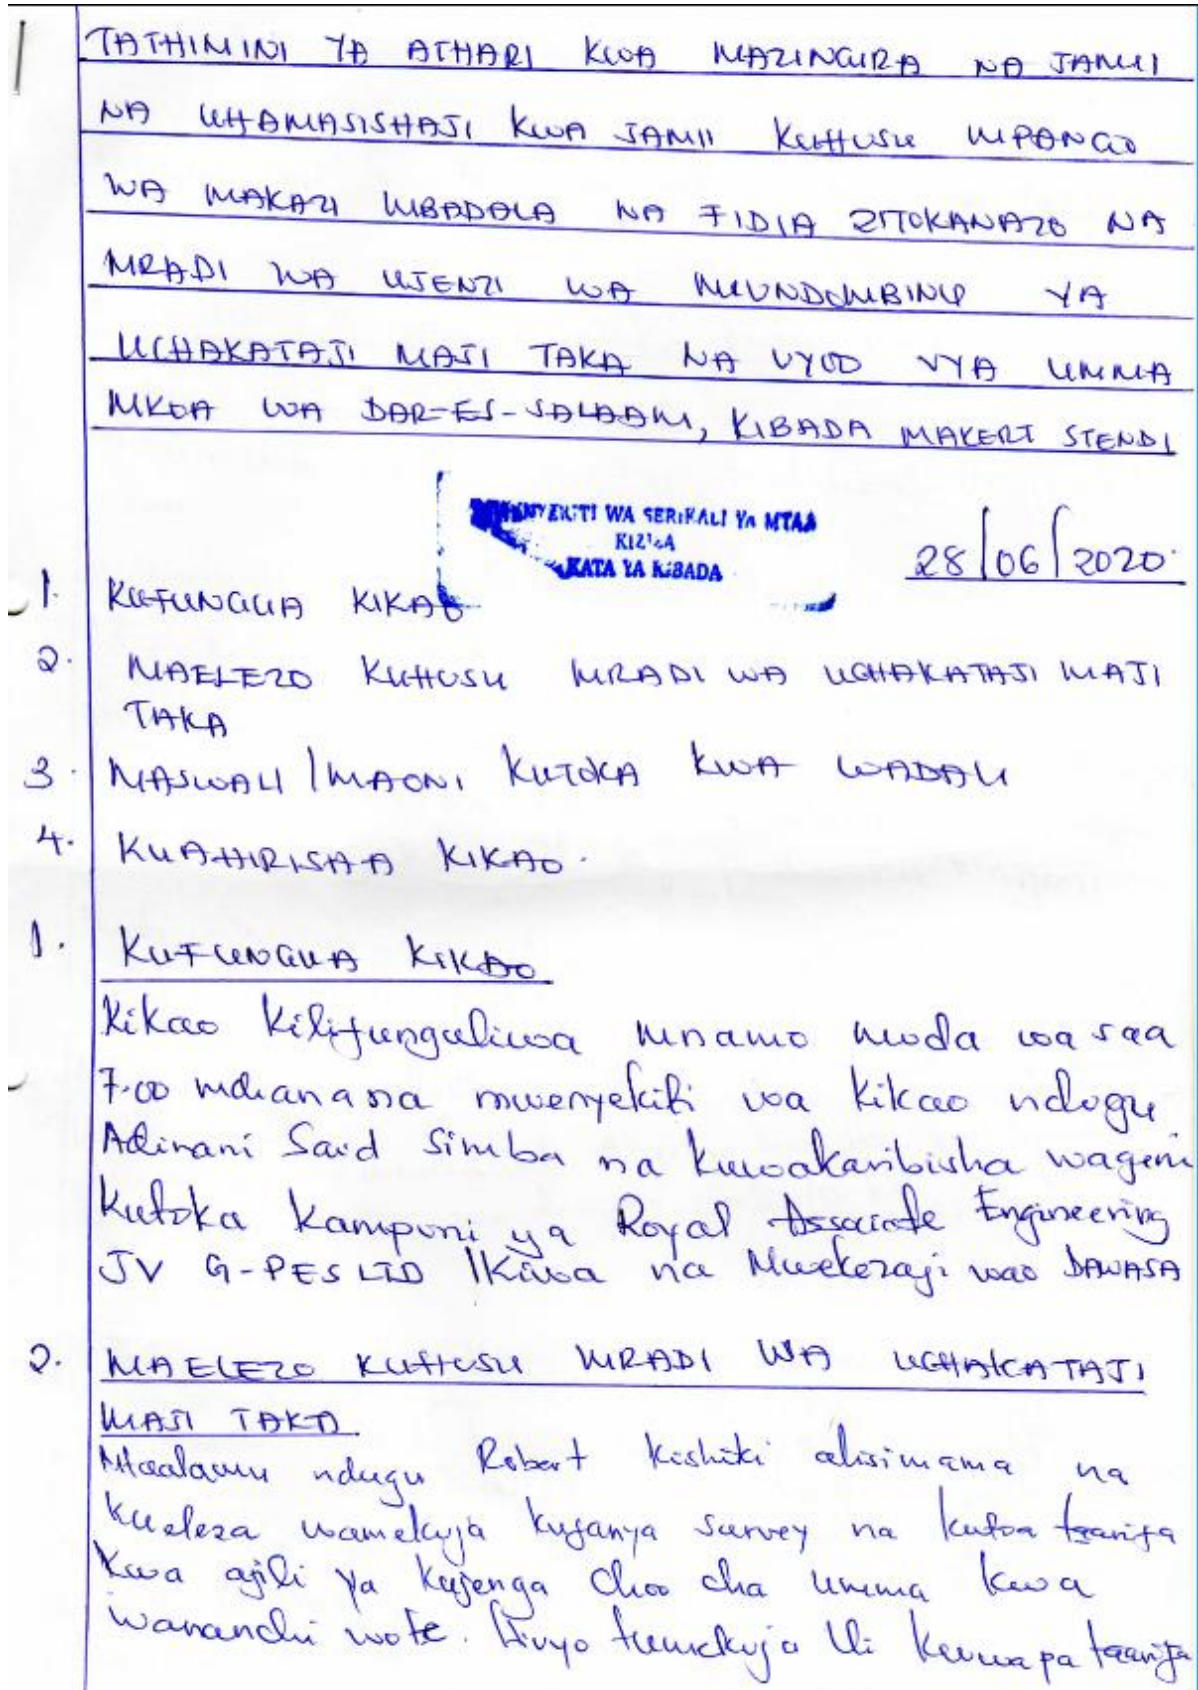 TATHIMINI YA ATHARI KWA MAZINGIRA NA JAMII
NA UHAMASISHAJI KWA JAMII KUHUSU MPANGO
WA MAKAZI MBADALA NA FIDIA ZITOKANAZO NA
MRADI WA UJENZI WA MIUNDOMBINU YA
UCHAKATAJI MAJI TAKA NA VYOO VYA UMMA
MKOA WA DAR-ES-SALAAM, KIBADA MAKERT STENDI
MWENYEKITI WA SERIKALI YA MTAA
KIZIZA
KATA YA KIBADA
28/06/2020
1. KUFUNGUA KIKAO
2. MAELEZO KUHUSU MRADI WA UCHAKATAJI MAJI
TAKA
3. MASWALI/MAONI KUTOKA KWA WADAU
4. KUAHIRISHA KIKAO.
1. KUFUNGUA KIKAO
Kikao kilifunguliwa mnamo muda wa saa
7.00 mchana na mwenyekiti wa kikao ndugu
Adinani Said Simba na kuwakaribisha wageni
kutoka kampuni ya Royal Associate Engineering
JV G-PES LTD Ikiwa na Mwekezaji wao DAWASA
2. MAELEZO KUHUSU MRADI WA UCHAKATAJI
MAJI TAKA
Mtaalamu ndugu Robert Kishiki alisimama na
kueleza wamekuja kufanya survey na kutoa taarifa
kwa ajili ya kujenga choo cha umma kwa
wananchi wote. Hivyo tumekuja ili kuwapa taarifa